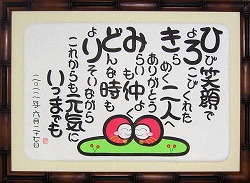 ひび笑顔で
よろこびくれた
きらめく二人
ありがとう
みらいも仲よく
どんな時も
よりそいながら
これからも元気に
いつまでも